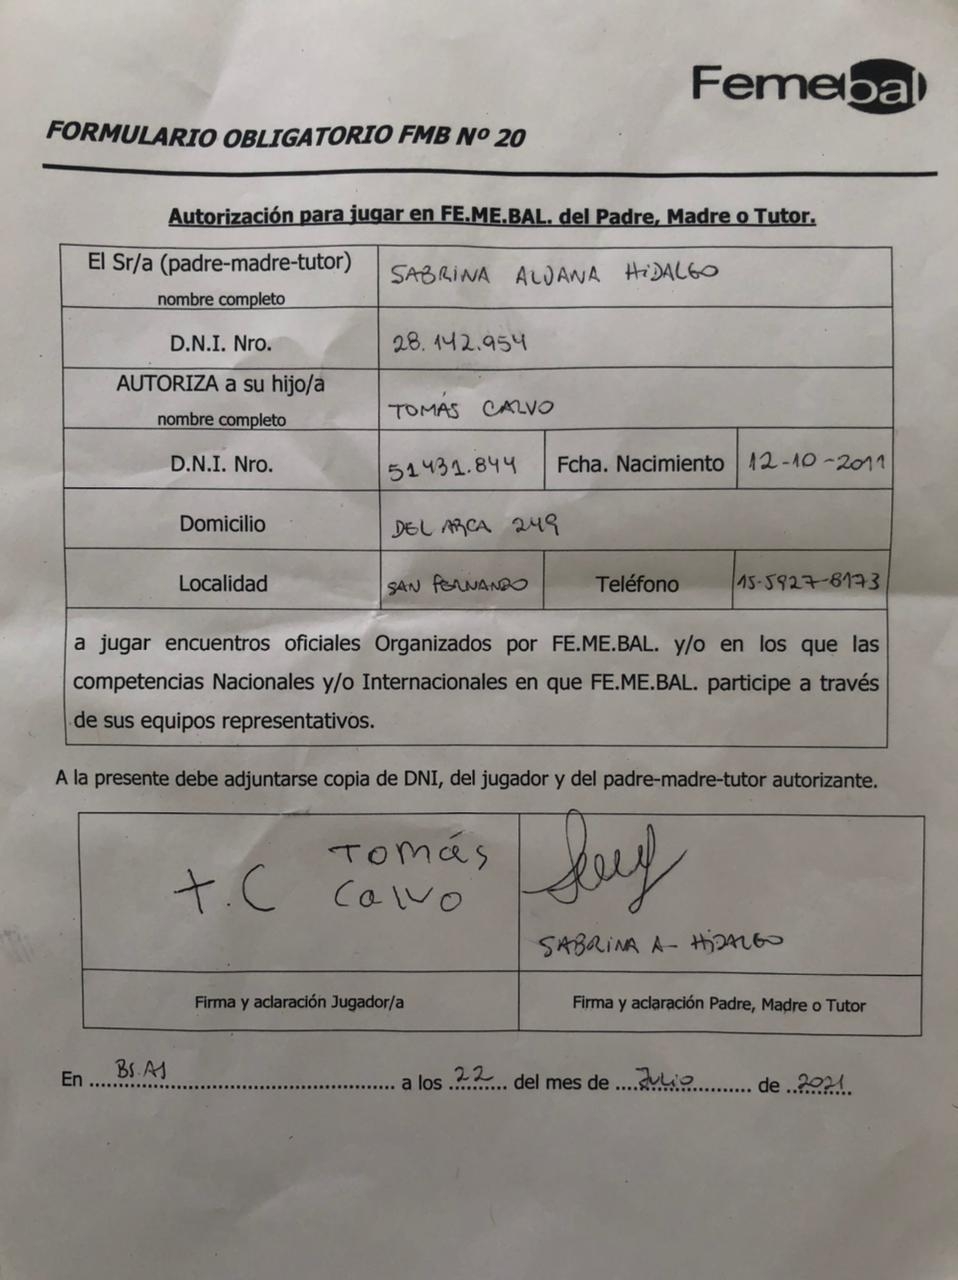 Femebal
FORMULARIO OBLIGATORIO FMB Nº 20
Autorización para jugar en FE.ME.BAL. del Padre, Madre o Tutor.
El Sr/a (padre-madre-tutor) SABRINA ALDANA HIDALGO
nombre completo
D.N.I. Nro. 28.142.954
AUTORIZA a su hijo/a
nombre completo TOMÁS CALVO
D.N.I. Nro. 51431.844 Fcha. Nacimiento 12-10-2011
Domicilio DEL ARCA 249
Localidad SAN FERNANDO Teléfono 15-5927-8173
a jugar encuentros oficiales Organizados por FE.ME.BAL. y/o en los que las
competencias Nacionales y/o Internacionales en que FE.ME.BAL. participe a través
de sus equipos representativos.
A la presente debe adjuntarse copia de DNI, del jugador y del padre-madre-tutor autorizante.
T.C Tomás
Calvo
SABRINA A- HIDALGO
Firma y aclaración Jugador/a Firma y aclaración Padre, Madre o Tutor
En Bs. As a los 22 del mes de Julio de 2021